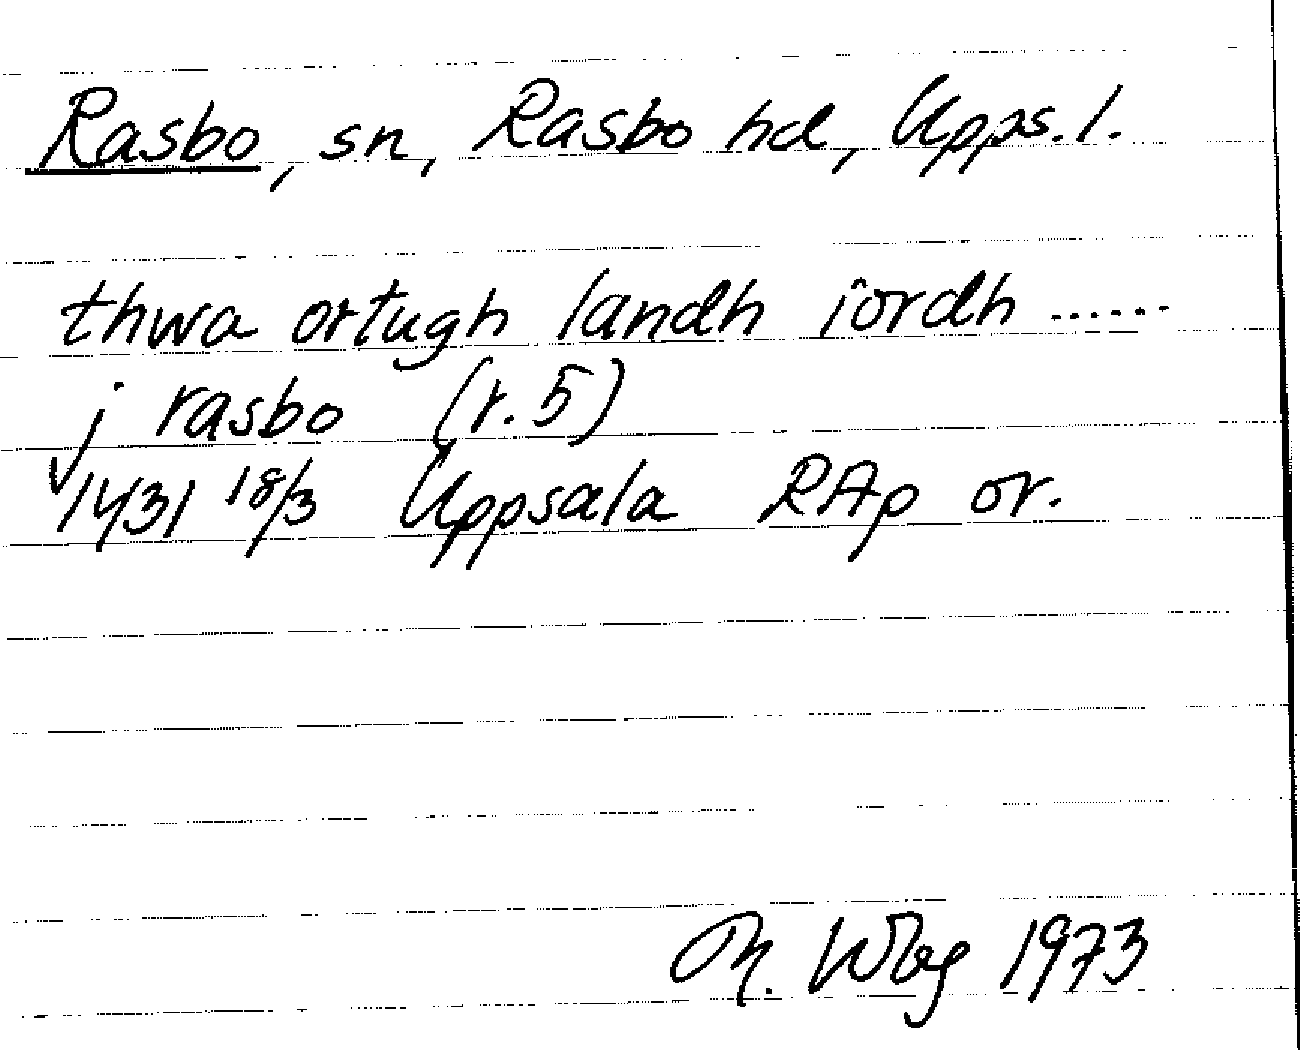 Rasbo, sn, Rasbo hd, Upps. l.
thwa ortugh landh iordh ......
j rasbo (r. 5)
1431 18/3 Uppsala RAp or.
M. Wbg 1973